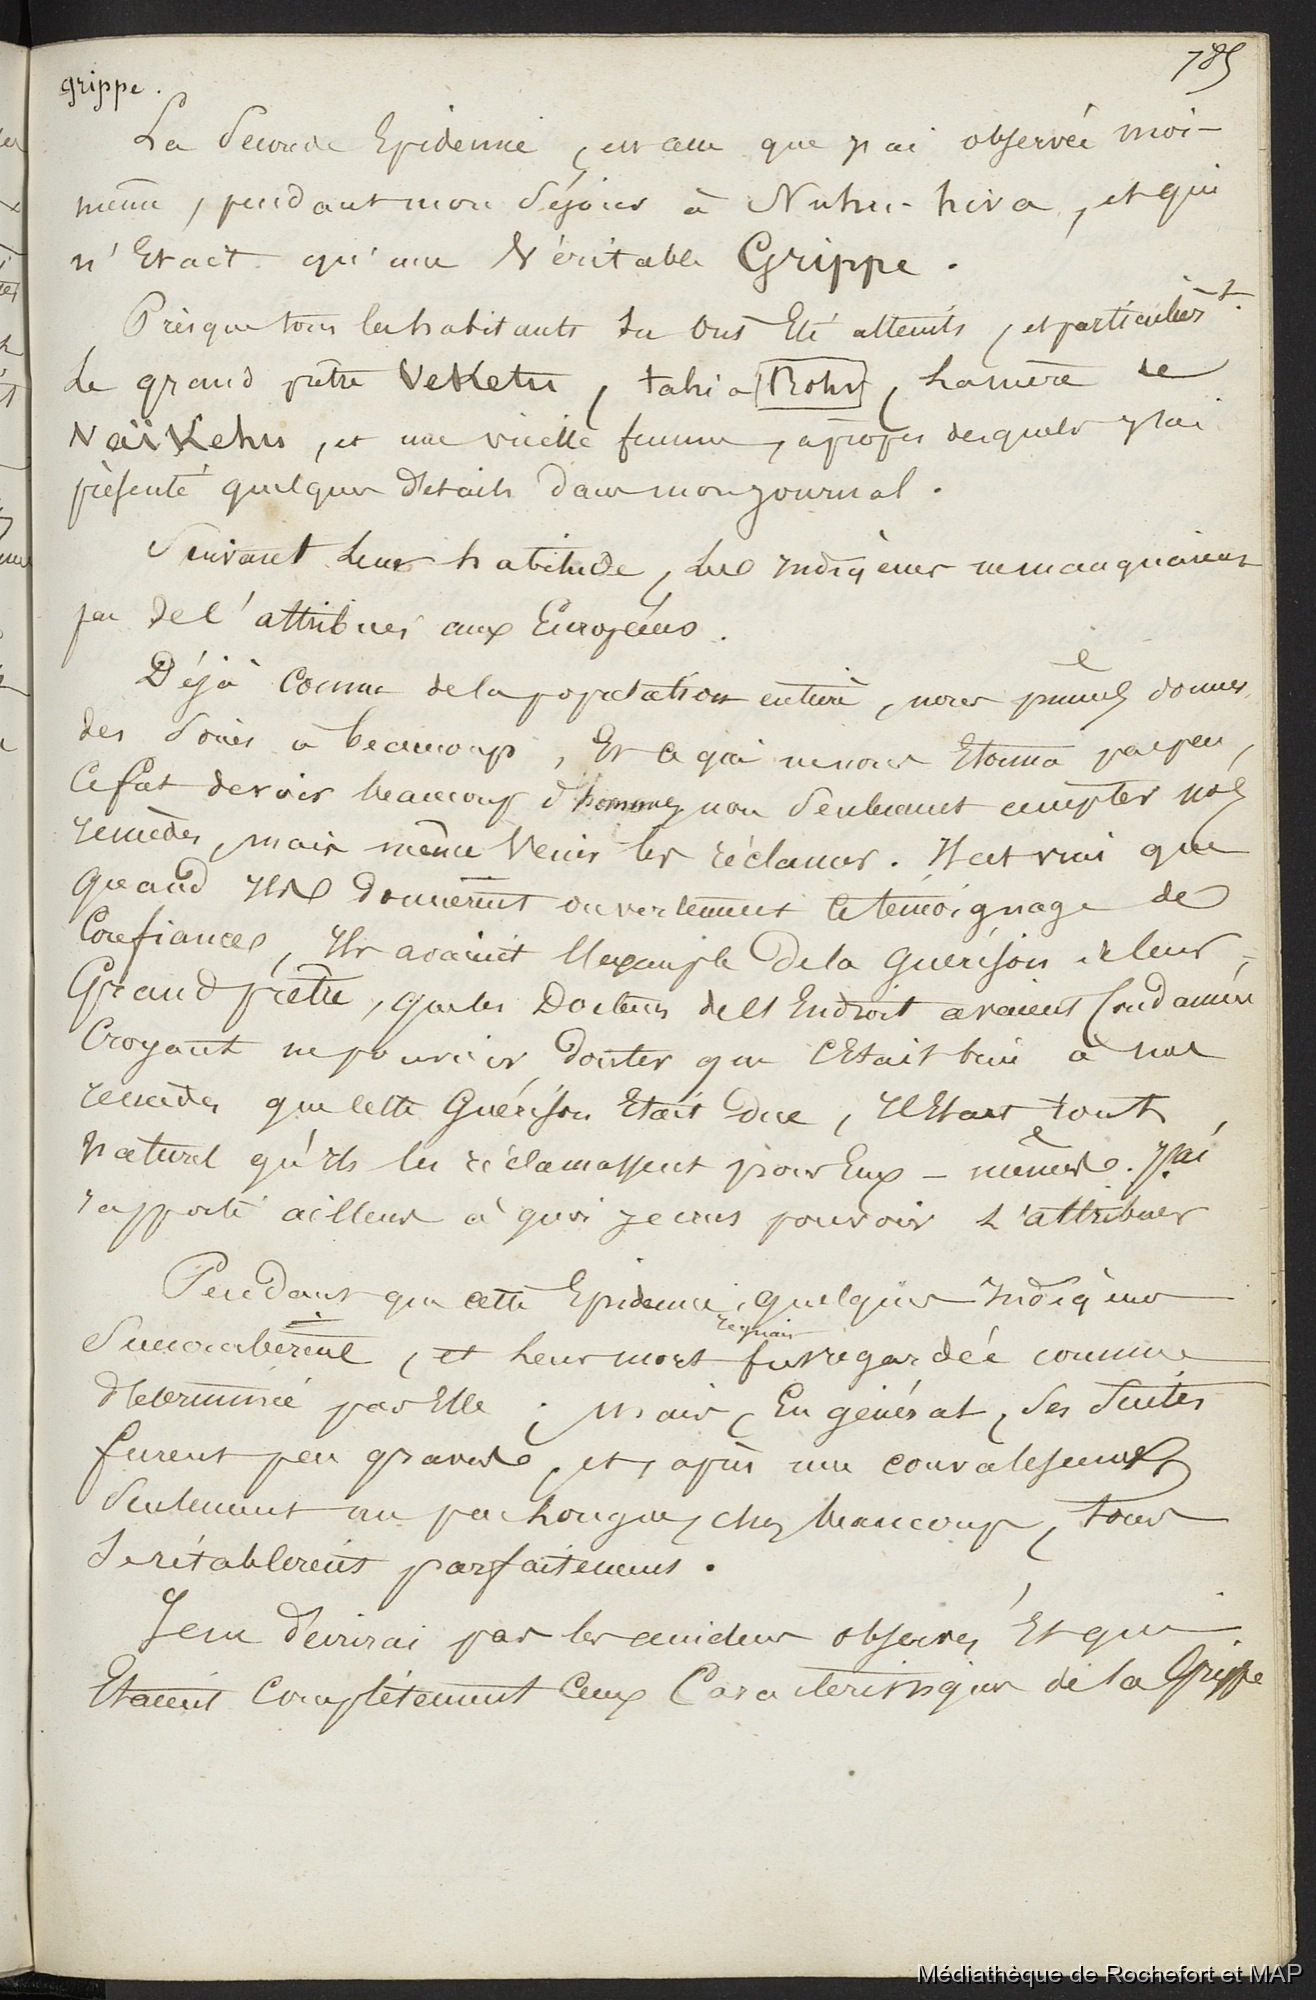 785
grippe.
La Seconde Epidemie, est celle que j'ai observée moi-
même, pendant mon séjour à Nuhu-hiva, et qui
n'Etait qu'une Véritable Grippe.
Presque tous les habitants en ont Eté atteints, et particulièrt.
Le grand prêtre Veketu, tahia Rohu, La mère de
Naïkehu, et une vieille femme, apropos desquels j'ai
présenté quelques détails dans mon journal.
Suivant leur habitude, Les indigènes ne manquaient
pas de l'attribuer aux Européens.
Déjà connu de la population entière, nous pûmes donner
des soins à beaucoup, Et ce qui ne nous Etonna pas peu,
Ce fut de voir beaucoup d'hommes non seulement accepter nos
remèdes, mais même venir les réclamer. Il est vrai que
quand Ils donnèrent ouvertement ce témoignage de
Confiance, Ils avaient l'exemple de la guérison de leur
Grand prêtre, que les Docteurs de l'Endroit avaient Condamné
Croyant ne pouvoir douter que c'Etait bien à nos
remèdes que cette Guérison Etait due, il Etait tout
naturel qu'ils les réclamassent pour Eux-mêmes. J'ai
rapporté ailleurs à quoi je crus pouvoir l'attribuer
Pendant que cette Epidemie, quelques Indigènes
regnait
Succombèrent, et leur mort fut regardée comme
déterminée par Elle; mais, En général, Ses Suites
furent peu graves, et, après une convalescence
Seulement un peu longue, chez beaucoup, tous
Se rétablirent parfaitement.
Je ne décrirai pas les accidens observés Et qui
Etaient Complètement Ceux Caracteristiques de la Grippe
Médiathèque de Rochefort et MAP